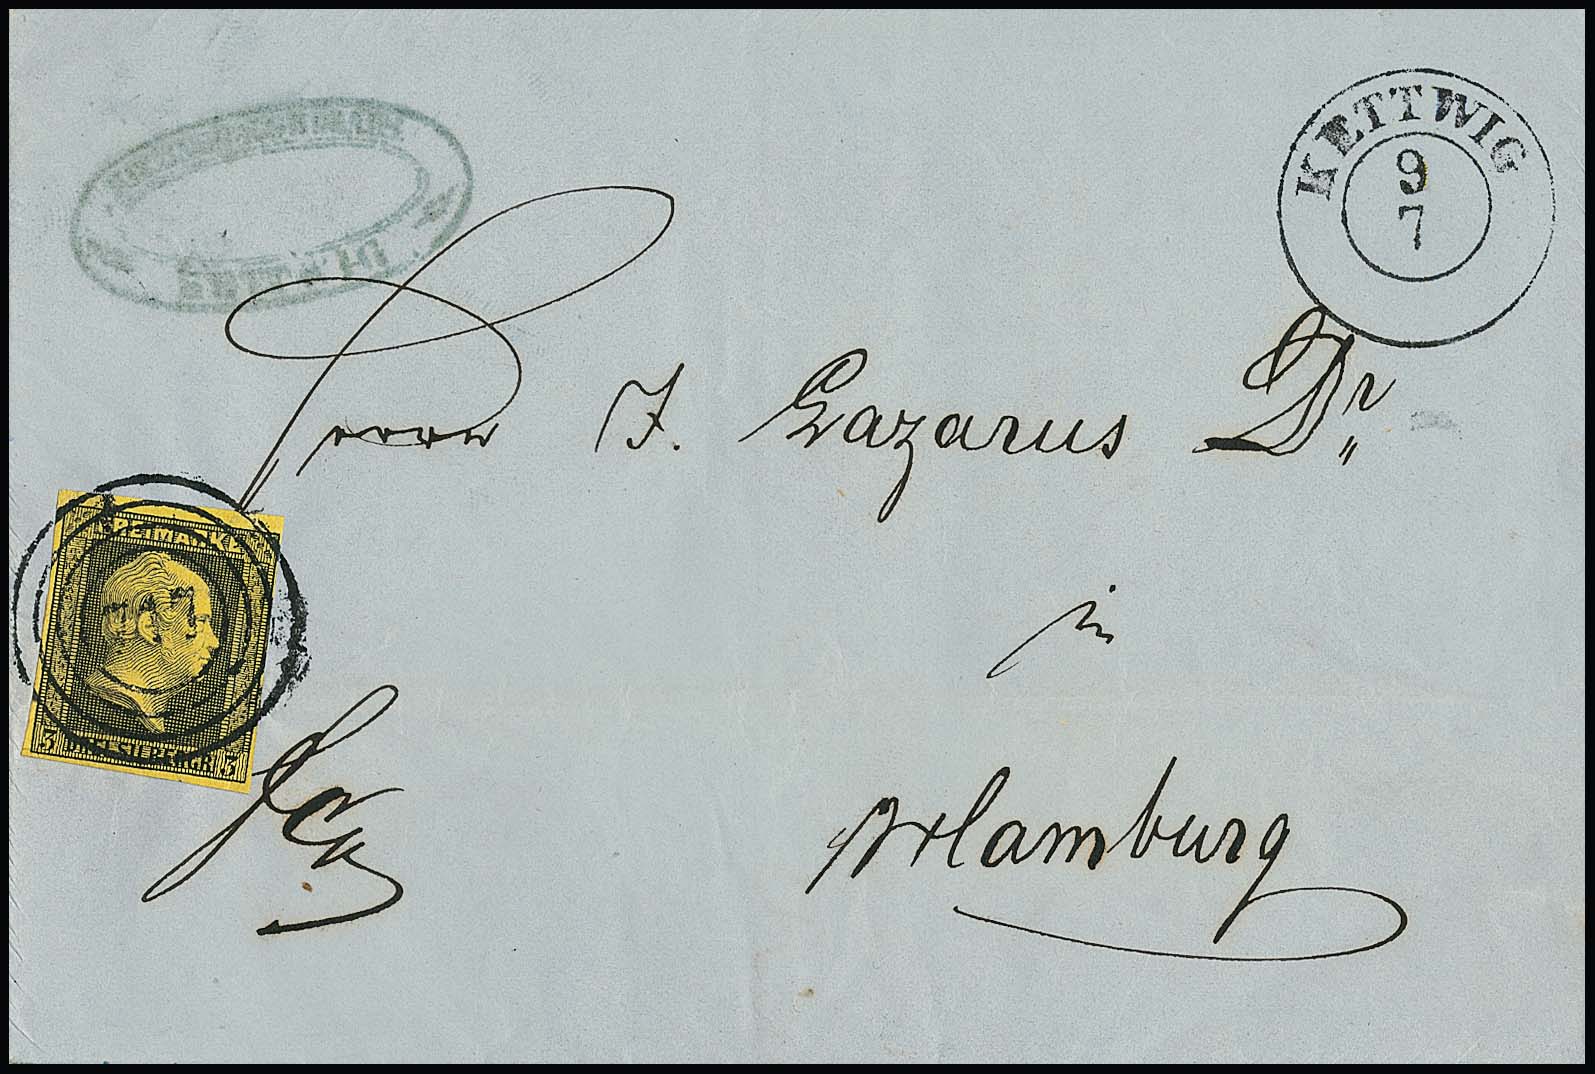 KETTWIG
9
7
Herrn J. Lazarus Dr.
in
Hamburg
FREIMARKE
3 DREI SILBERGR. 3